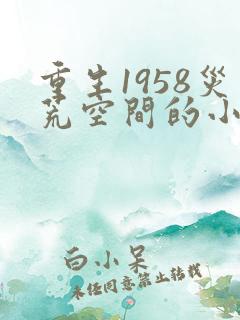 重生1958災
荒空間的小
白小呆
未经同意禁止转载